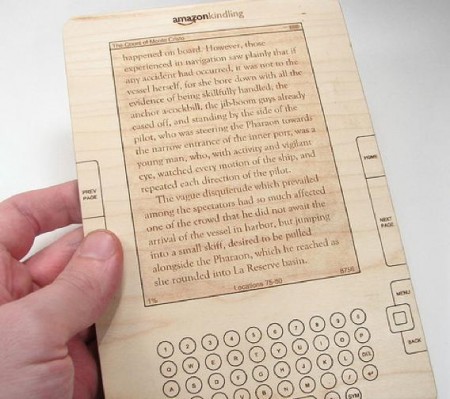 amazonkindling
The Count of Monte Cristo
happened on board. However, those
experienced in navigation saw plainly that if
any accident had occurred, it was not to the
vessel herself, for she bore down with all the
evidence of being skillfully handled, the
anchor a-cockbill, the jib-boom guys already
eased off, and standing by the side of the
pilot, who was steering the Pharaon towards
the narrow entrance of the inner port, was a
young man, who, with activity and vigilant
eye, watched every motion of the ship, and
repeated each direction of the pilot.
The vague disquietude which prevailed
among the spectators had so much affected
one of the crowd that he did not await the
arrival of the vessel in harbor, but jumping
into a small skiff, desired to be pulled
alongside the Pharaon, which he reached as
she rounded into La Reserve basin.
1% Locations 75-80 8756
PREV
PAGE
HOME
NEXT
PAGE
MENU
BACK
1 2 3 4 5 6 7 8 9 0
Q W E R T Y U I O P
A S D F G H J K L DEL
V B N M
SYM